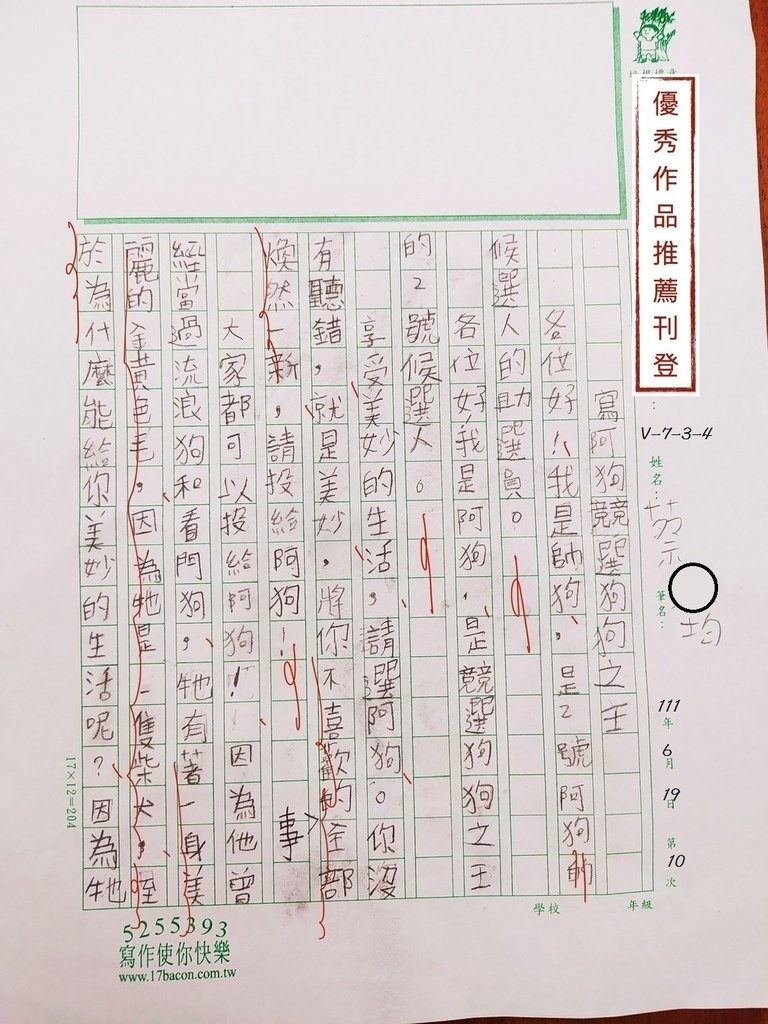 優秀作品推薦刊登
V-7-3-4
姓名：
筆名：
均
111年6月19日第10次
年級
學校
寫阿狗競選狗狗之王
各位好！我是帥狗，是2號阿狗的
候選人的助選員。
各位好我是阿狗，是競選狗狗之王
的2號候選人。
享受美妙的生活，請選阿狗。你沒
有聽錯，就是美妙，將你不喜歡的全部
事
煥然一新，請投給阿狗！
大家都可以投給阿狗！因為他曾
經當過流浪狗和看門狗，牠有著一身美
麗的金黃色毛，因為牠是一隻柴犬，至
於為什麼能給你美妙的生活呢？因為牠
17×12=204
5255393
寫作使你快樂
www.17bacon.com.tw